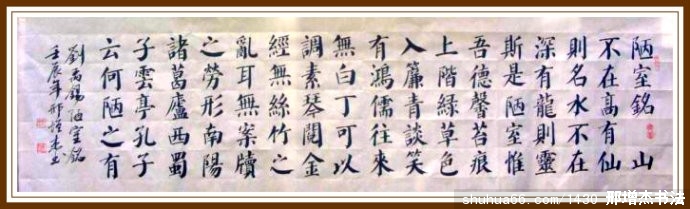 陋室銘 山
不在高有仙
則名水不在
深有龍則靈
斯是陋室惟
吾德馨苔痕
上階緑草色
入簾青談笑
有鴻儒往來
無白丁可以
調素琴閱金
經無絲竹之
亂耳無案牘
之勞形南陽
諸葛廬西蜀
子雲亭孔子
云何陋之有
劉禹錫陋室銘
壬辰年邢增杰書
shuhua66.com/1430 邢增杰书法